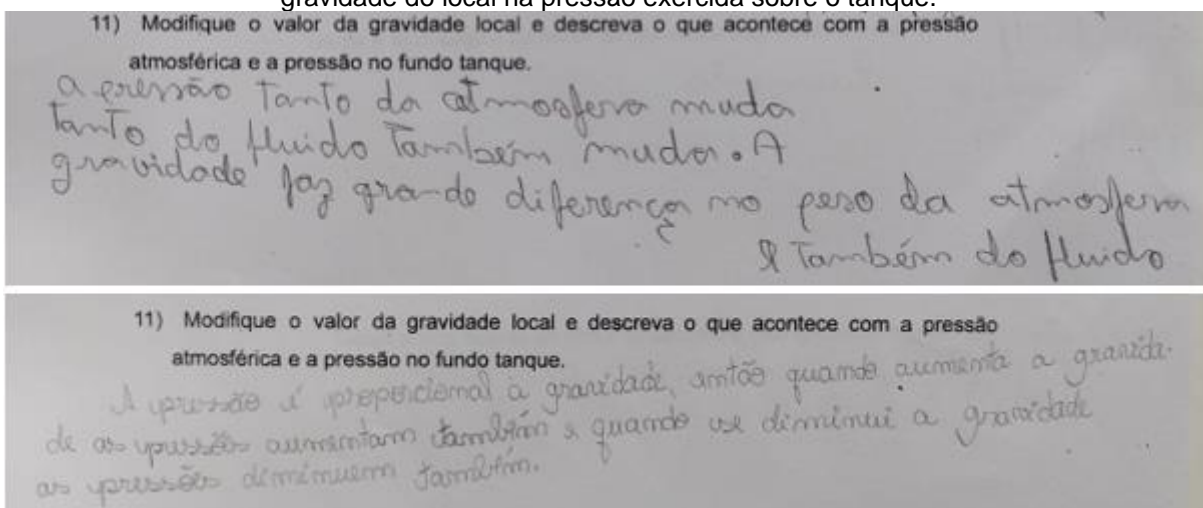 gravidade do local na pressão exercida sobre o tanque.
11) Modifique o valor da gravidade local e descreva o que acontece com a pressão
atmosférica e a pressão no fundo tanque.
a pressão tanto da atmosfera muda
tanto do fluido também muda. A
gravidade faz grande diferença no peso da atmosfera
e também do fluido
11) Modifique o valor da gravidade local e descreva o que acontece com a pressão
atmosférica e a pressão no fundo tanque.
A pressão é proporcional a gravidade, então quando aumenta a gravida-
de as pressões aumentam também e quando se diminui a gravidade
as pressões diminuem também.